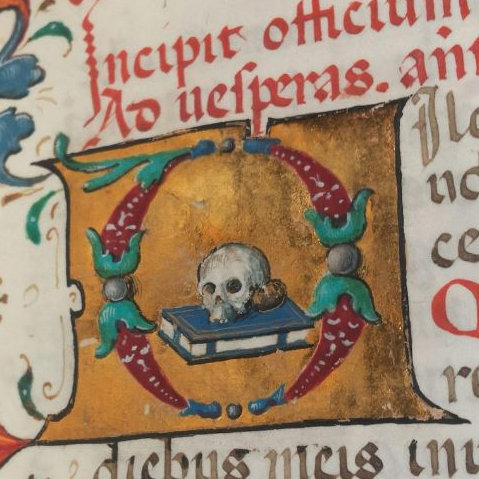 Incipit officium
Ad uesperas. an
DIl
ce
Q
re
diebus meis inu